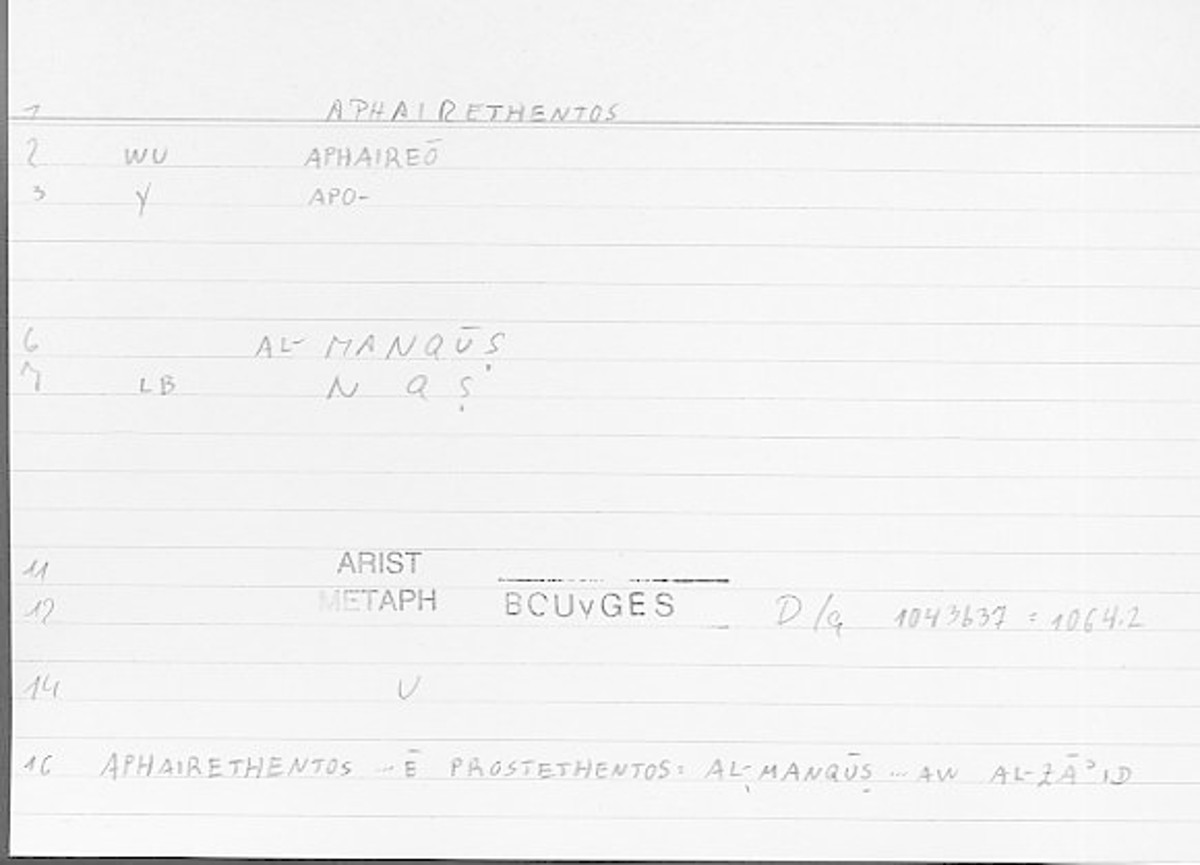 1 APHAIRETHENTOS
2 WU APHAIREŌ
3 Y APO-
6 AL-MANQŪṢ
7 LB N Q Ṣ
11 ARIST
12 METAPH BOUYGES D/q 1043b37 = 1064.2
14 V
16 APHAIRETHENTOS ... Ē PROSTETHENTOS: AL-MANQŪṢ ... AW AL-ZĀʾID